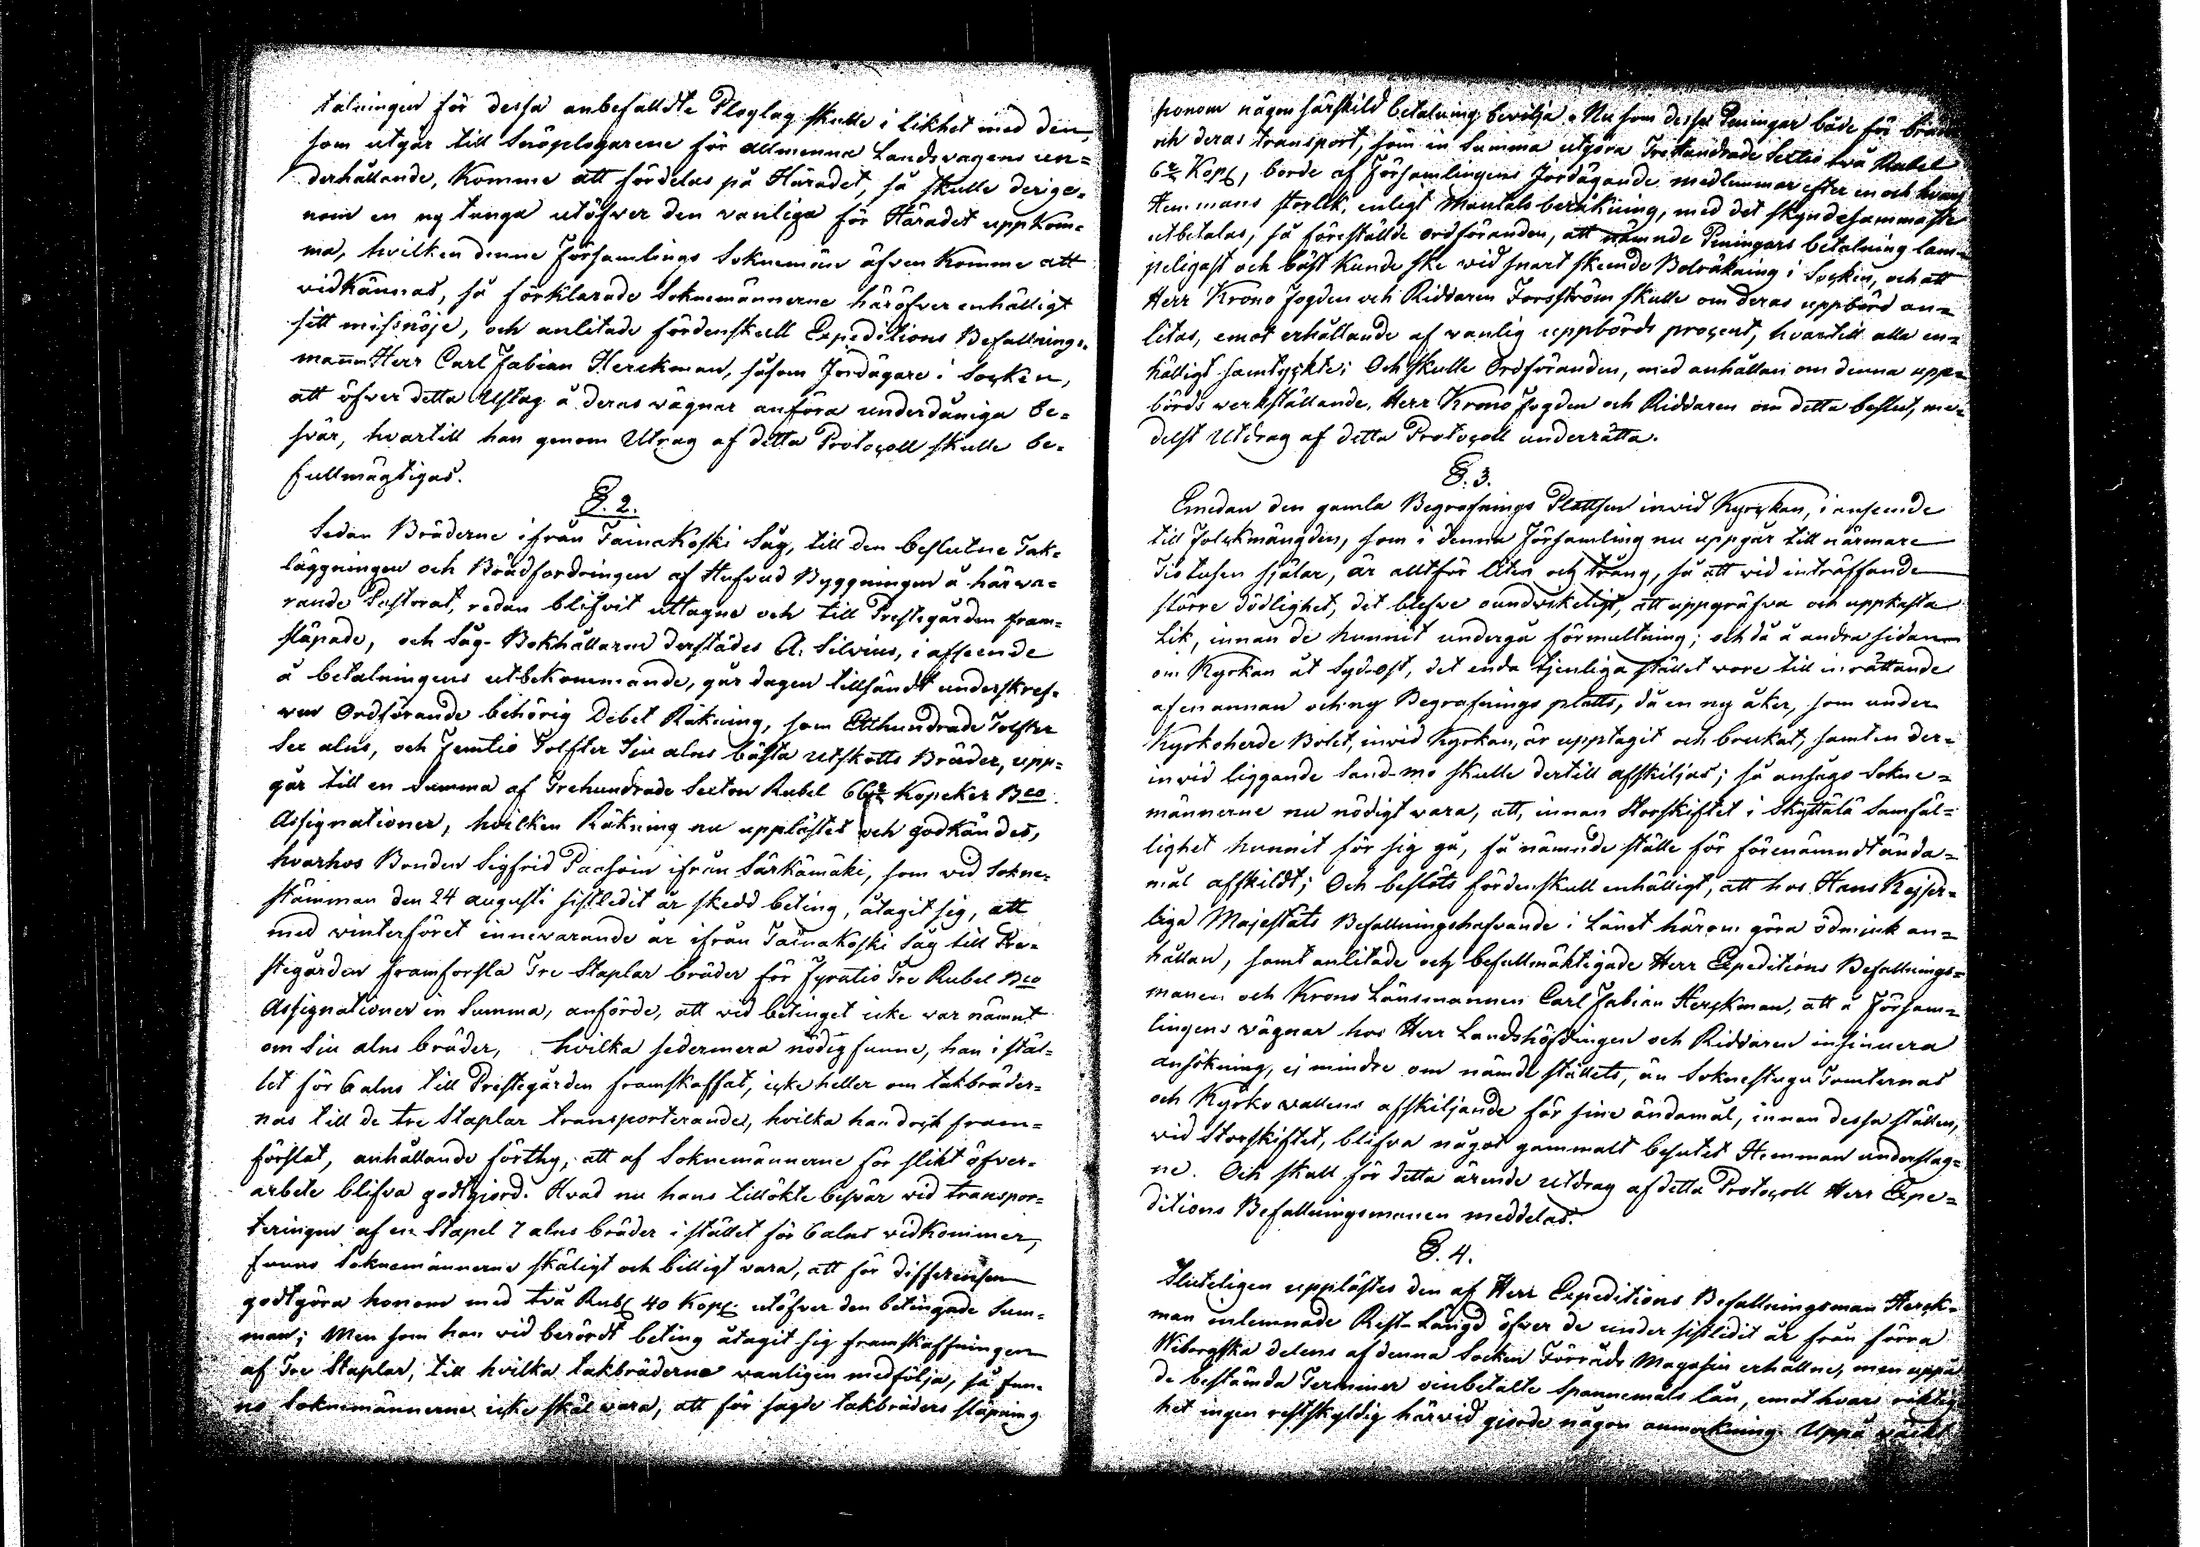 talningen för dessa anbefalldte Ploglag skulle i likhet med den,
som utgår till Snöplogarene för allmenna Landsvägens un=
derhållande, komme att fördelas på Häradet, så skulle derige=
nom en ny tunga utöfver den vanliga för Häradet uppkom=
ma, hvilken denne Församlings Soknemän äfven komme att
vidkännas, så förklarade Soknemännerne häröfver enhälligt
sitt missnöje, och anlitade fördenskull Expeditions Befallnings=
mann Herr Carl Fabian Herckman, såsom Jordägare i Socken,
att öfver detta Uslag å deras vägnar anföra underdåniga be=
svär, hvartill han genom Utrag af detta Protocoll skulle be=
fullmägtigas.
§. 2.
Sedan Bräderne ifrån Tainakoski Såg, till den beslutne Tak=
läggningen och Brädfordringen af Hufvud Byggningen å härva=
rande Pastorat, redan blifvit uttagne och till Prestegården fram=
släpade, och Såg-Bokhållaren derstädes A. Silvius, i afseende
å betalningens utbekommande, går dagen tillsändt underskref=
ven Ordförande behörig Debet Räkning, som Etthundrade Tolfter
Sex alns, och Femtio Tolfter Siu alns bästa utskotts Bräder, upp=
går till en Summa af Trehundrade Sexton Rubel 66 2/7 Kopeker Bco
Assignationer, hvilken Räkning nu upplästes och godkändes,
hvarhos Bonden Sigfrid Paasoin ifrån Särkämäki, som vid Sokne=
stämman den 24 augusti sistledit år skedd beting, åtagit sig, att
med vinterföret innevarande år ifrån Tainakoski Såg till Pre=
stegården framforsla Tre Staplar bräder för Fyratio Tre Rubel Bco
Assignationer in Summa, anförde, att vid betinget icke var nämnt
om Siu alns bräder, hvilka sedermera nödig funne, han i stäl=
let för 6 alns till Prestegården framskaffat, icke heller om takbräder=
nas till de tre Staplar transporterande, hvilka han dock fram=
förslat, anhållande förthy, att af Soknemännerne för slikt öfver=
arbete blifva godtgjord. Hvad nu hans tillökte besvär vid transpor=
teringen af en Stapel 7 alns bräder i stället för 6 alns vidkommer,
funno Soknemännerne skäligt och billigt vara, att för differensen
godtgöra honom med två Rub. 40 Kop. utöfver den betingade Sum=
man; Men som han vid berördt beting åtagit sig framskaffningen
af Tre Staplar, till hvilka takbräderne vanligen medfölja, så fun=
no Soknemännerne icke skäl vara, att för sagde takbräders släpning
honom någon särskild betalning bevilja. Nu som dessa Peningar både för bräder
och deras transport, som in Summa utgöra Trehundrade Sextio två Rubel
6 2/7 Kop, borde af Församlingens Jordägande medlemmar efter en och hvars
Hemmans storlek, enligt Mantals beräkning, med det skyndesammaste
utbetalas, så föreställde ordföranden, att nämnde Peningars betalning läm=
peligast och bäst kunde ske vid snart skeende Bolräkning i Socken, och att
Herr Krono Fogden och Riddaren Forsström skulle om deras uppbörd an=
litas, emot erhållande af vanlig uppbörds procent, hvartill alla en=
hälligt samtyckte; Och skulle Ordföranden, med anhållan om denna upp=
börds verkställande, Herr Krono Fogden och Riddaren om detta beslut, me=
delst Utdrag af detta Protocoll underrätta.
§. 3.
Emedan den gamla Begrafnings Plattsen invid Kyrckan, i anseende
till Folckmängden, som i denna Församling nu uppgår till närmare
Tio tusen själar, är alltför liten och trång, så att vid inträffande
större dödlighet, det blefve oundvikeligt, att uppgräfva och uppkasta
Lik, innan de hunnit undergå förmultning; och då å andra sidan
om Kyrkan åt Syd-ost, det enda tjenliga stället vore till inrättande
af en annan och ny Begrafnings platts, då en ny åker, som under
Kyrkoherde Bolet, invid Kyrkan, är upptagit och brukat, samt en der=
invid liggande Sand-mo skulle dertill afskiljas; så ansågs Sokne=
männerne nu nödigt vara, att, innan Storskiftet i Skyttälä Samfäl=
lighet hunnit för sig gå, få nämnde ställe för förenämndt ända=
mål afskildt; Och beslöts fördenskull enhälligt, att hos Hans Kejser=
liga Majestäts Befallningshafvande i Länet härom göra ödmjuk an=
hållan, samt anlitade och befullmäktigade Herr Expeditions Befallnings=
manen och Krono Länsmannen Carl Fabian Herckman, att å Försam=
lingens vägnar hos Herr Landshöfdingen och Riddaren insinuera
ansökning, ej mindre om nämde ställets, än Soknestugu Tomternas
och Kyrko vallens afskiljande för sine ändamål, innan dessa ställen,
vid Storskiftet, blifva något gammalt besutet Hemman underlag=
ne. Och skall för detta ärende utdrag af detta Protocoll Herr Expe=
ditions Befallningsmanen meddelas.
§. 4.
Sluteligen upplästes den af Herr Expeditions Befallningsman Herck=
man inlemnade Rest-Längd öfver de under sistledit år från förra
Wiborgska delens af denna Socken Förråds Magasin erhållne, men uppå
de bestämda Terminer oinbetalte Spannemåls lån, emot hvars riktig
het ingen restskyldig härvid gjorde någon anmerkning. Uppå väckt